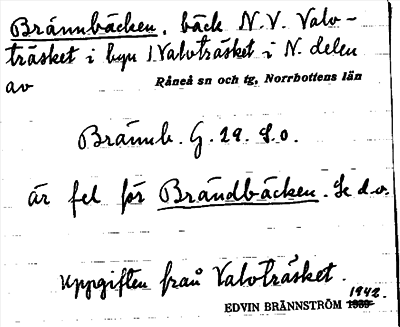 Brännbäcken, bäck N.V. Valvträsket i byn Valvträsket i N. delen
av Råneå sn och tg, Norrbottens län
Brännb. G. 29. S.O.
är fel för Brändbäcken. Se d.o.
Uppgiften från Valvträsket.
1942
EDVIN BRÄNNSTRÖM 1939